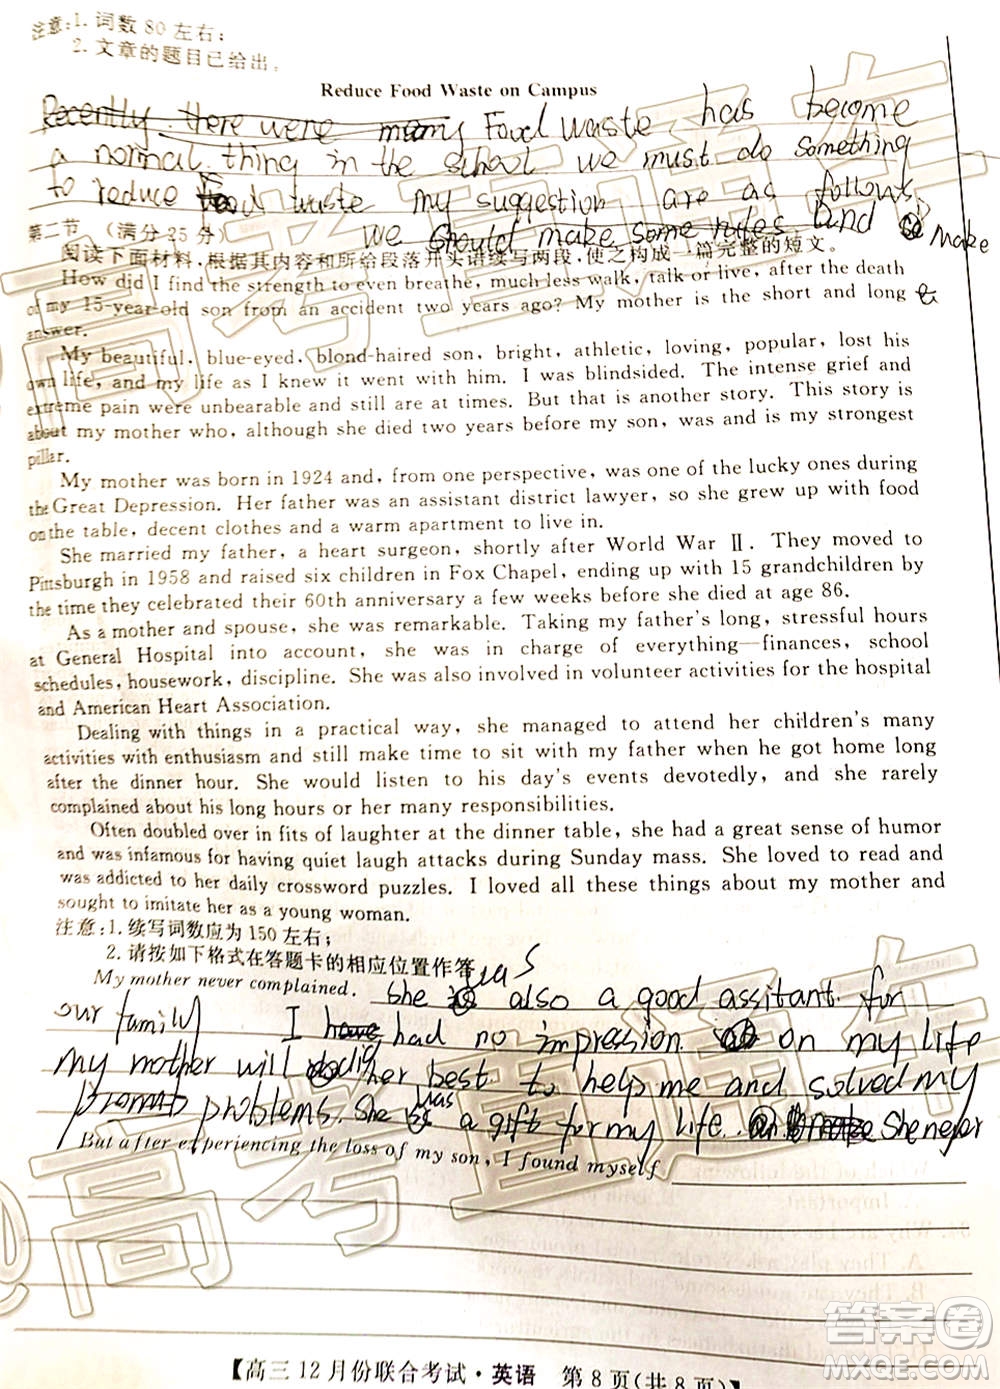 注意:1. 词数80左右;
2. 文章的题目已给出。
Reduce Food Waste on Campus
Recently, there were many Food waste has become
a normal thing in the school we must do something
to reduce food waste my suggestion are as follows,
第二节 (满分25分) we should make some rules and make
阅读下面材料,根据其内容和所给段落开头语续写两段,使之构成一篇完整的短文。
How did I find the strength to even breathe, much less walk, talk or live, after the death
of my 15-year-old son from an accident two years ago? My mother is the short and long
answer.
My beautiful, blue-eyed, blond-haired son, bright, athletic, loving, popular, lost his
own life, and my life as I knew it went with him. I was blindsided. The intense grief and
extreme pain were unbearable and still are at times. But that is another story. This story is
about my mother who, although she died two years before my son, was and is my strongest
pillar.
My mother was born in 1924 and, from one perspective, was one of the lucky ones during
the Great Depression. Her father was an assistant district lawyer, so she grew up with food
on the table, decent clothes and a warm apartment to live in.
She married my father, a heart surgeon, shortly after World War Ⅱ. They moved to
Pittsburgh in 1958 and raised six children in Fox Chapel, ending up with 15 grandchildren by
the time they celebrated their 60th anniversary a few weeks before she died at age 86.
As a mother and spouse, she was remarkable. Taking my father's long, stressful hours
at General Hospital into account, she handled everything—finances, school
schedules, housework, discipline. She was also involved in volunteer activities for the hospital
and American Heart Association.
Dealing with things in a practical way, she managed to attend her children's many
activities with enthusiasm and still make time to sit with my father when he got home long
after the dinner hour. She would listen to his day's events devotedly, and she rarely
complained about his long hours or her many responsibilities.
Often doubled over in fits of laughter at the dinner table, she had a great sense of humor
and was infamous for having quiet laugh attacks during Sunday mass. She loved to read and
was addicted to her daily crossword puzzles. I loved all these things about my mother and
sought to imitate her as a young woman.
注意:1. 续写词数应为150左右;
2. 请按如下格式在答题卡的相应位置作答。
My mother never complained. She was also a good assitant for
our family I had no impression on my life
my mother will doing her best to help me and solved my
problems. She was a gift for my life. She never
But after experiencing the loss of my son, I found myself
【高三12月份联合考试·英语 第8页(共8页)】